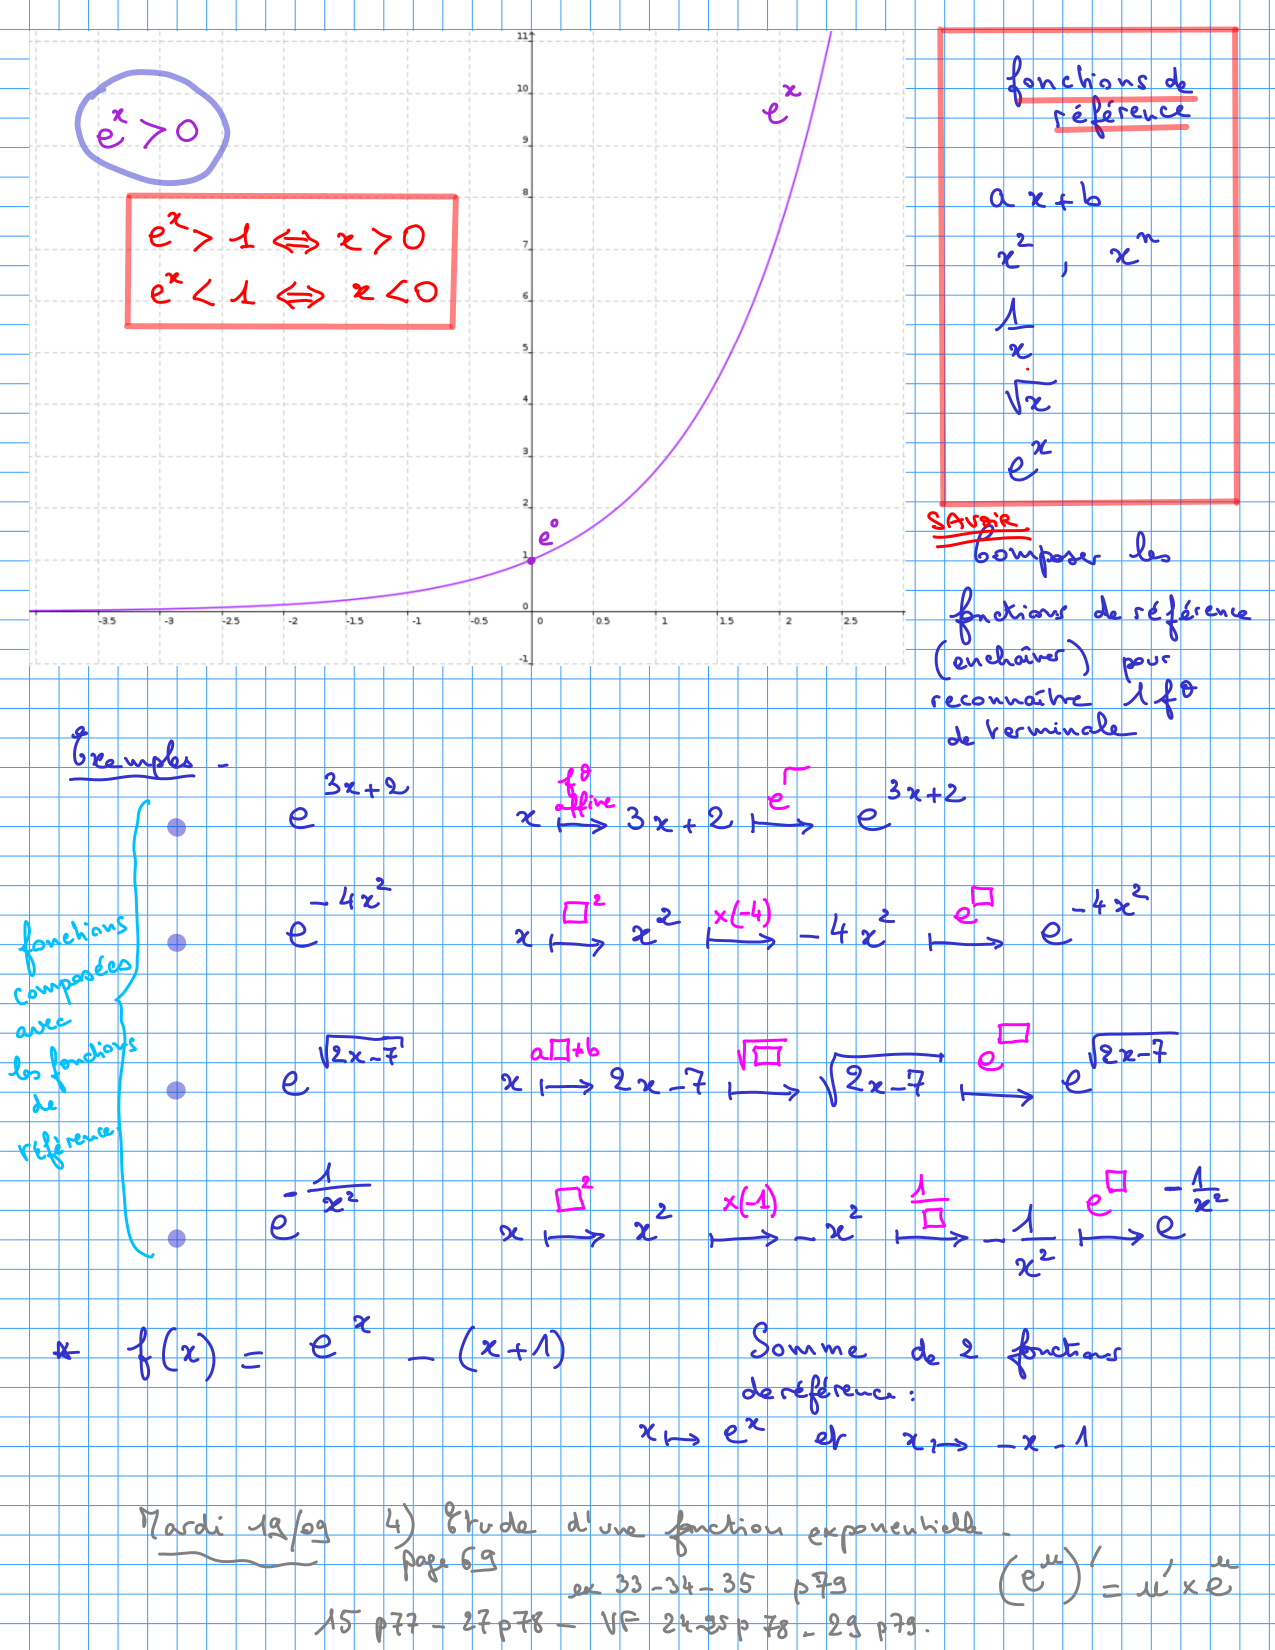 e^x > 0
e^x > 1 ⟺ x > 0
e^x < 1 ⟺ x < 0
e^x
e^0
11
10
9
8
7
6
5
4
3
2
1
0
-1
-3.5 -3 -2.5 -2 -1.5 -1 -0.5 0 0.5 1 1.5 2 2.5
fonctions de
référence
a x + b
x^2 , x^n
1/x
√x
e^x
SAVOIR
Composer les
fonctions de référence
(enchaîner) pour
reconnaître 1 f°
de terminale
Exemples -
fonctions
composées
avec
les fonctions
de
référence.
f°
affine
e^┌
e^{3x+2} x ⟼ 3x+2 ⟼ e^{3x+2}
□^2 ×(-4) e^□
e^{-4x^2} x ⟼ x^2 ⟼ -4x^2 ⟼ e^{-4x^2}
a□+b √□ e^□
e^{√(2x-7)} x ⟼ 2x-7 ⟼ √(2x-7) ⟼ e^{√(2x-7)}
□^2 ×(-1) 1/□ e^□
e^{-1/x^2} x ⟼ x^2 ⟼ -x^2 ⟼ -1/x^2 ⟼ e^{-1/x^2}
* f(x) = e^x - (x+1) Somme de 2 fonctions
de référence :
x ⟼ e^x et x ⟼ -x-1
Mardi 19/09 4) Etude d'une fonction exponentielle -
page 69
(e^u)' = u' × e^u
ex 33-34-35 p79
15 p77 - 27 p78 - VF 24-25 p 78 - 29 p79.